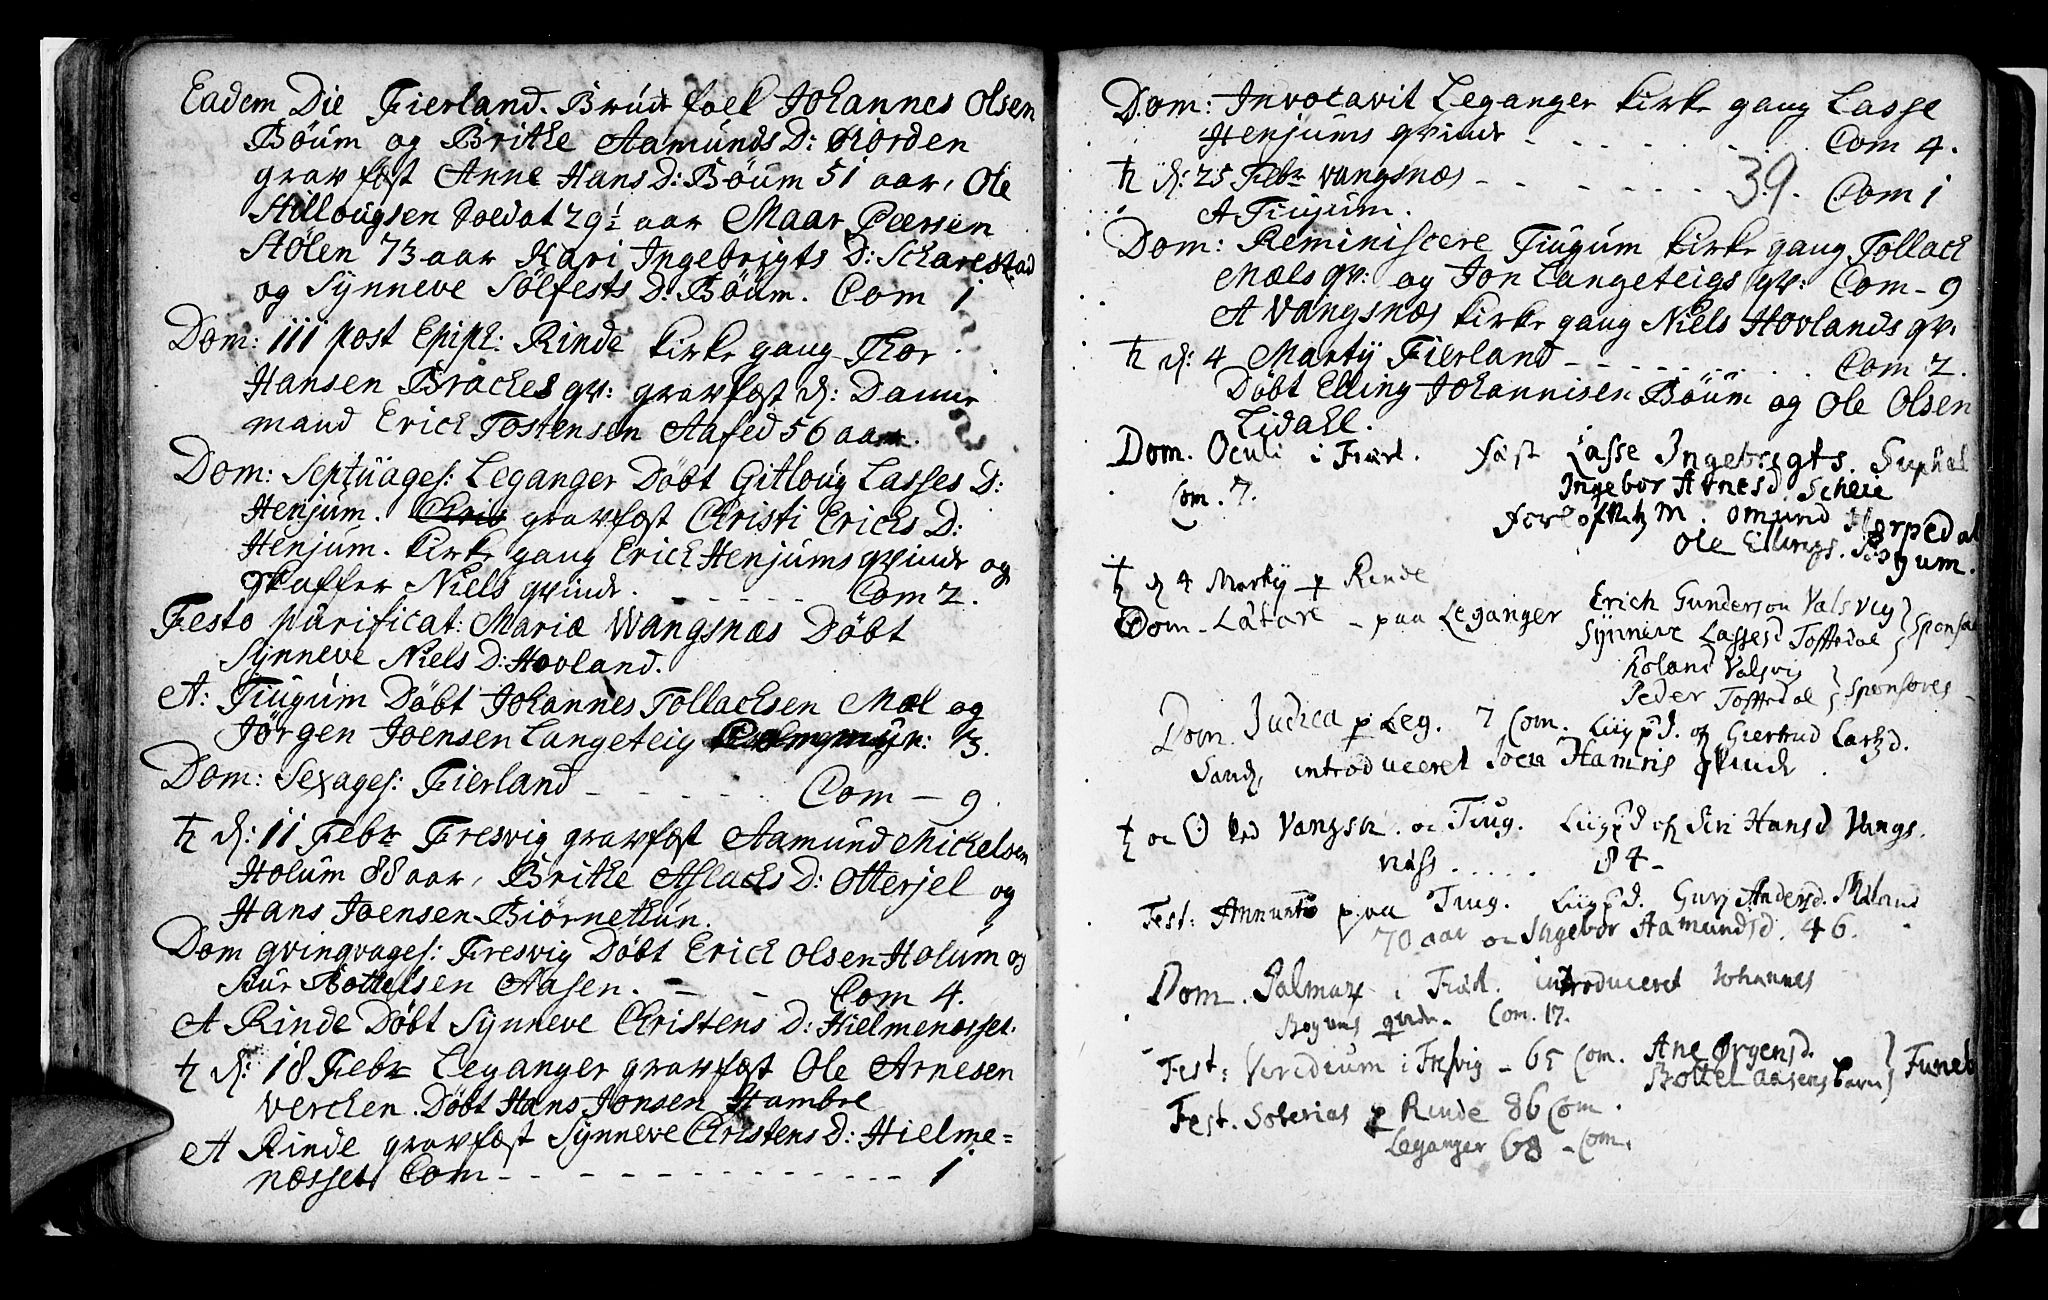 Eadem Die Fierland. Brud foel Johannes Olsen
Böum og Brithe Aamunds D: Giörden
gravfæst Anne Hans D: Böum 51 aar, Ole
Stillougsen Soldat 29½ aar Maar Peersen
Stölen 73 aar Kari Ingebrigts D: Scharestad
og Synneve Sölfests D: Böum. Com 1
Dom: III post Epiph: Rinde kirke gang Thor
Hansen Braches qv: gravfæst d: Danne
mand Erich Tostensen Aafed 56 aar.
Dom: Septuages: Leganger Döbt Gitloug Lasses D:
Henjum. gravfæst Christi Erichs D:
Henjum. kirke gang Erich Henjums qvinde og
Skaffer Niels qvinde. - - - - - Com 2.
Festo purificat: Mariæ Wangsnæs Döbt
Synneve Niels D: Hovland.
A: Tiugum Döbt Johannes Tollachsen Mæl og
Jörgen Joensen Langeteig
Dom: Sexages: Fierland - - - - - Com - 9.
♄ d: 11 Febr Fresvig gravfæst Aamund Michelsen
Holum 88 aar, Brithe Aslachs D: Otterjel og
Hans Joensen Biörnethun.
Dom qvinqvages: Fresvig Döbt Erich Olsen Holum og
Siur Bottelsen Aasen. - - Com 4.
A Rinde Döbt Synneve Christens D: Hielmenosset.
♄ d: 18 Febr Leganger gravfæst Ole Arnesen
verchen. Döbt Hans Jonsen Hambre
A Rinde gravfæst Synneve Christens D: Hielme=
næsset Com - - - - - - - - - - 1
Dom: Invocavit Leganger kirke gang Lasse
Henjums qvinde - - - - - - Com 4.
♄ d: 25 Febr Vangsnæs - - - - - - Com 1
39.
A Tiugum.
Dom: Reminiscere Tiugum kirke gang Tollach
Mæls qv: og Jon Langeteigs qv: Com - 9
A Vangsnæs kirke gang Niels Hovlands qv.
♄ d: 4 Martij Fierland - - - - - - Com 2.
Döbt Elling Johannisen Böum og Ole Olsen
Lidahl.
Dom. Oculi i Fiærl. fæst Lasse Ingebrigts. Suphel
Com. 7. Ingebor Arnesd. Scheie
M. Omund Horpedal
Ole Ellings. Böyum.
♄ d 4 Martij p Rinde
Dom. Lætare - paa Leganger Erich Gunderson Valsvig
Synneve Lassesd Tofftedal } Sponsal
Roland Valsvig
Peder Tofftedal } Sponsores -
Dom. Judica p Leg. 7 Com. Liigpd. of Giertrud Larsd.
Sand, introduceret Joen Hamris qvinde.
♄ oc ☉ ved Vangsn. oc Tiug. Liigpd of Siri Hansd Vangs.
næss . . . . . 84 -
Fest: Annunt paa Tiug. Liigpd. Guri Andersd. Mæland
70 aar oc Ingebor Aamundsd. 46.
Dom. Palmar i Fiærl. introduceret Johannes
Böyums qvinde. Com. 17.
Fest: Viridium i Fresvig - 65 Com. Ane Ørgensd.
Bottel Aasens barn } Funeb
Fest. Soterias p Rinde 86 Com.
Leganger 68 - Com.